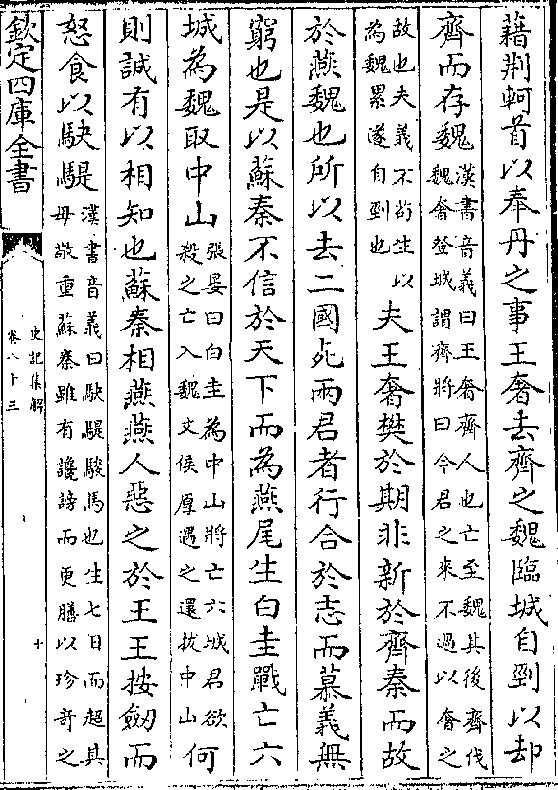 藉荆軻首以奉丹之事王奢去齊之魏臨城自剄以却
齊而存魏漢書音義曰王奢齊人也亡至魏其後齊伐
魏奢登城謂齊將曰今君之來不過以奢之
故也夫義不苟生以
為魏累遂自剄也
夫王奢樊於期非新於齊秦而故
於燕魏也所以去二國死兩君者行合於志而慕義無
窮也是以蘇秦不信於天下而為燕尾生白圭戰亡六
城為魏取中山張晏曰白圭為中山將亡六城君欲
殺之亡入魏文侯厚遇之還拔中山
何
則誠有以相知也蘇秦相燕燕人惡之於王王按劒而
怒食以駃騠漢書音義曰駃騠駿馬也生七日而超其
母敬重蘇秦雖有讒謗而更膳以珍奇之
欽定四庫全書
史記集解
卷八十三
十